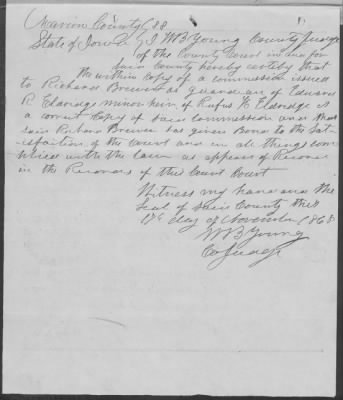 Marion County } SS
State of Iowa } I W B Young County Judge
of the County Court in and for
said County hereby certify that
the within copy of a commission issued
to Richard Brewer as guardian of Edward
R. Eldredge minor heir of Rufus K. Eldredge is
a correct copy of said Commission and that
said Richard Brewer has given Bond to the Sat-
isfaction of the Court and in all things com-
plied with the law as appears of Record
in the Records of this Court
Witness my hand and the
Seal of said County this
17th day of November 1868
W B Young
Co Judge